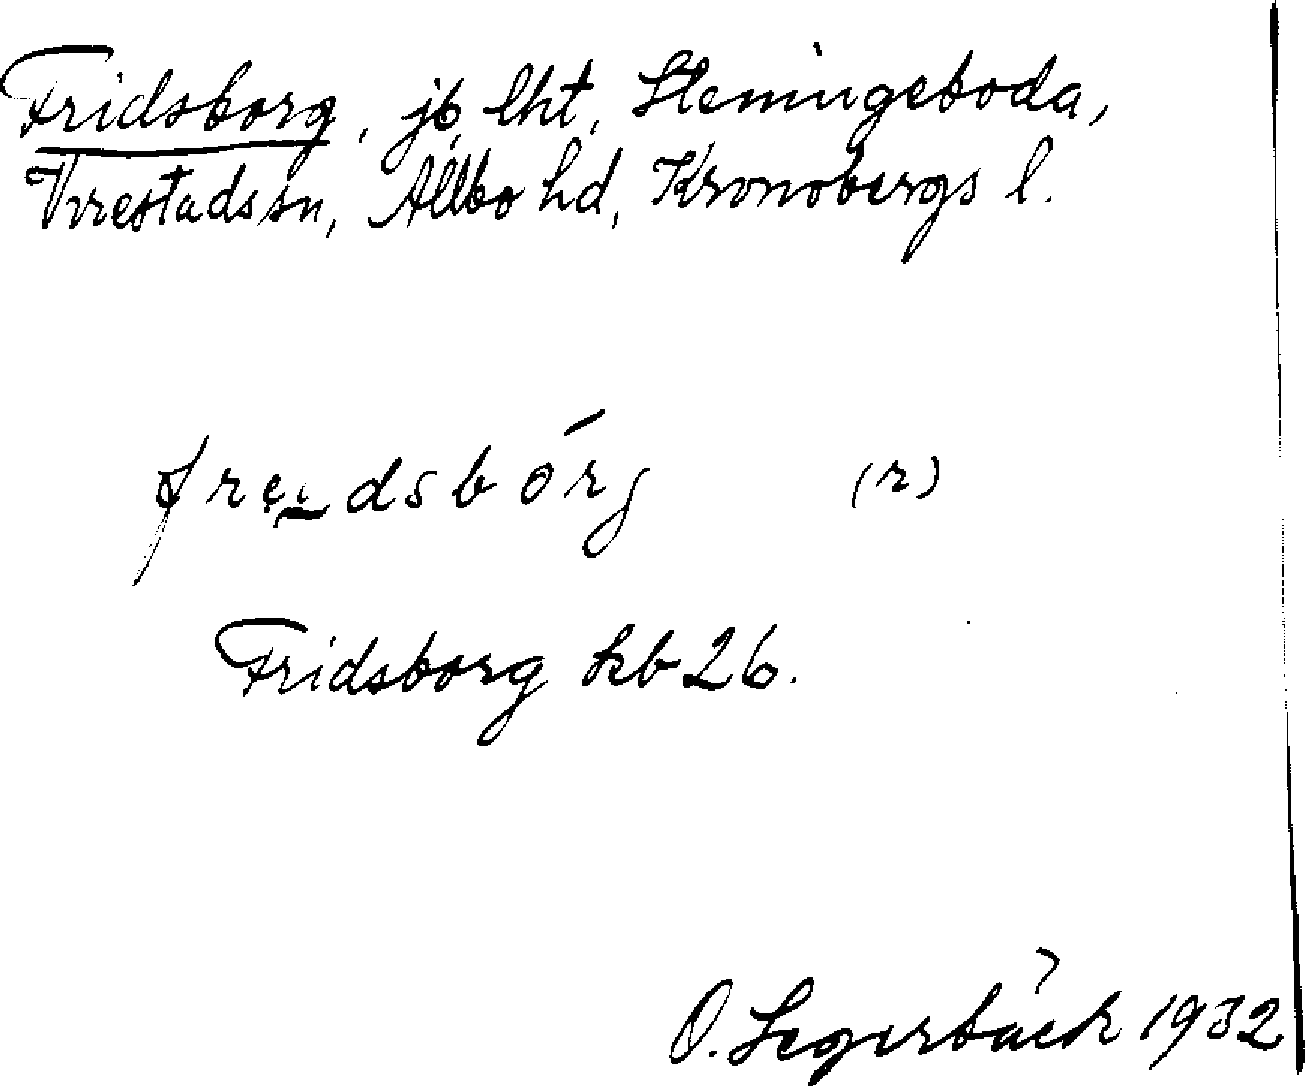 Fridsborg, jb, lht, Slemingeboda,
Virestads sn, Allbo hd, Kronobergs l.
fredsbórg (r)
Fridsborg kb 26.
O. Segerbäck 1932